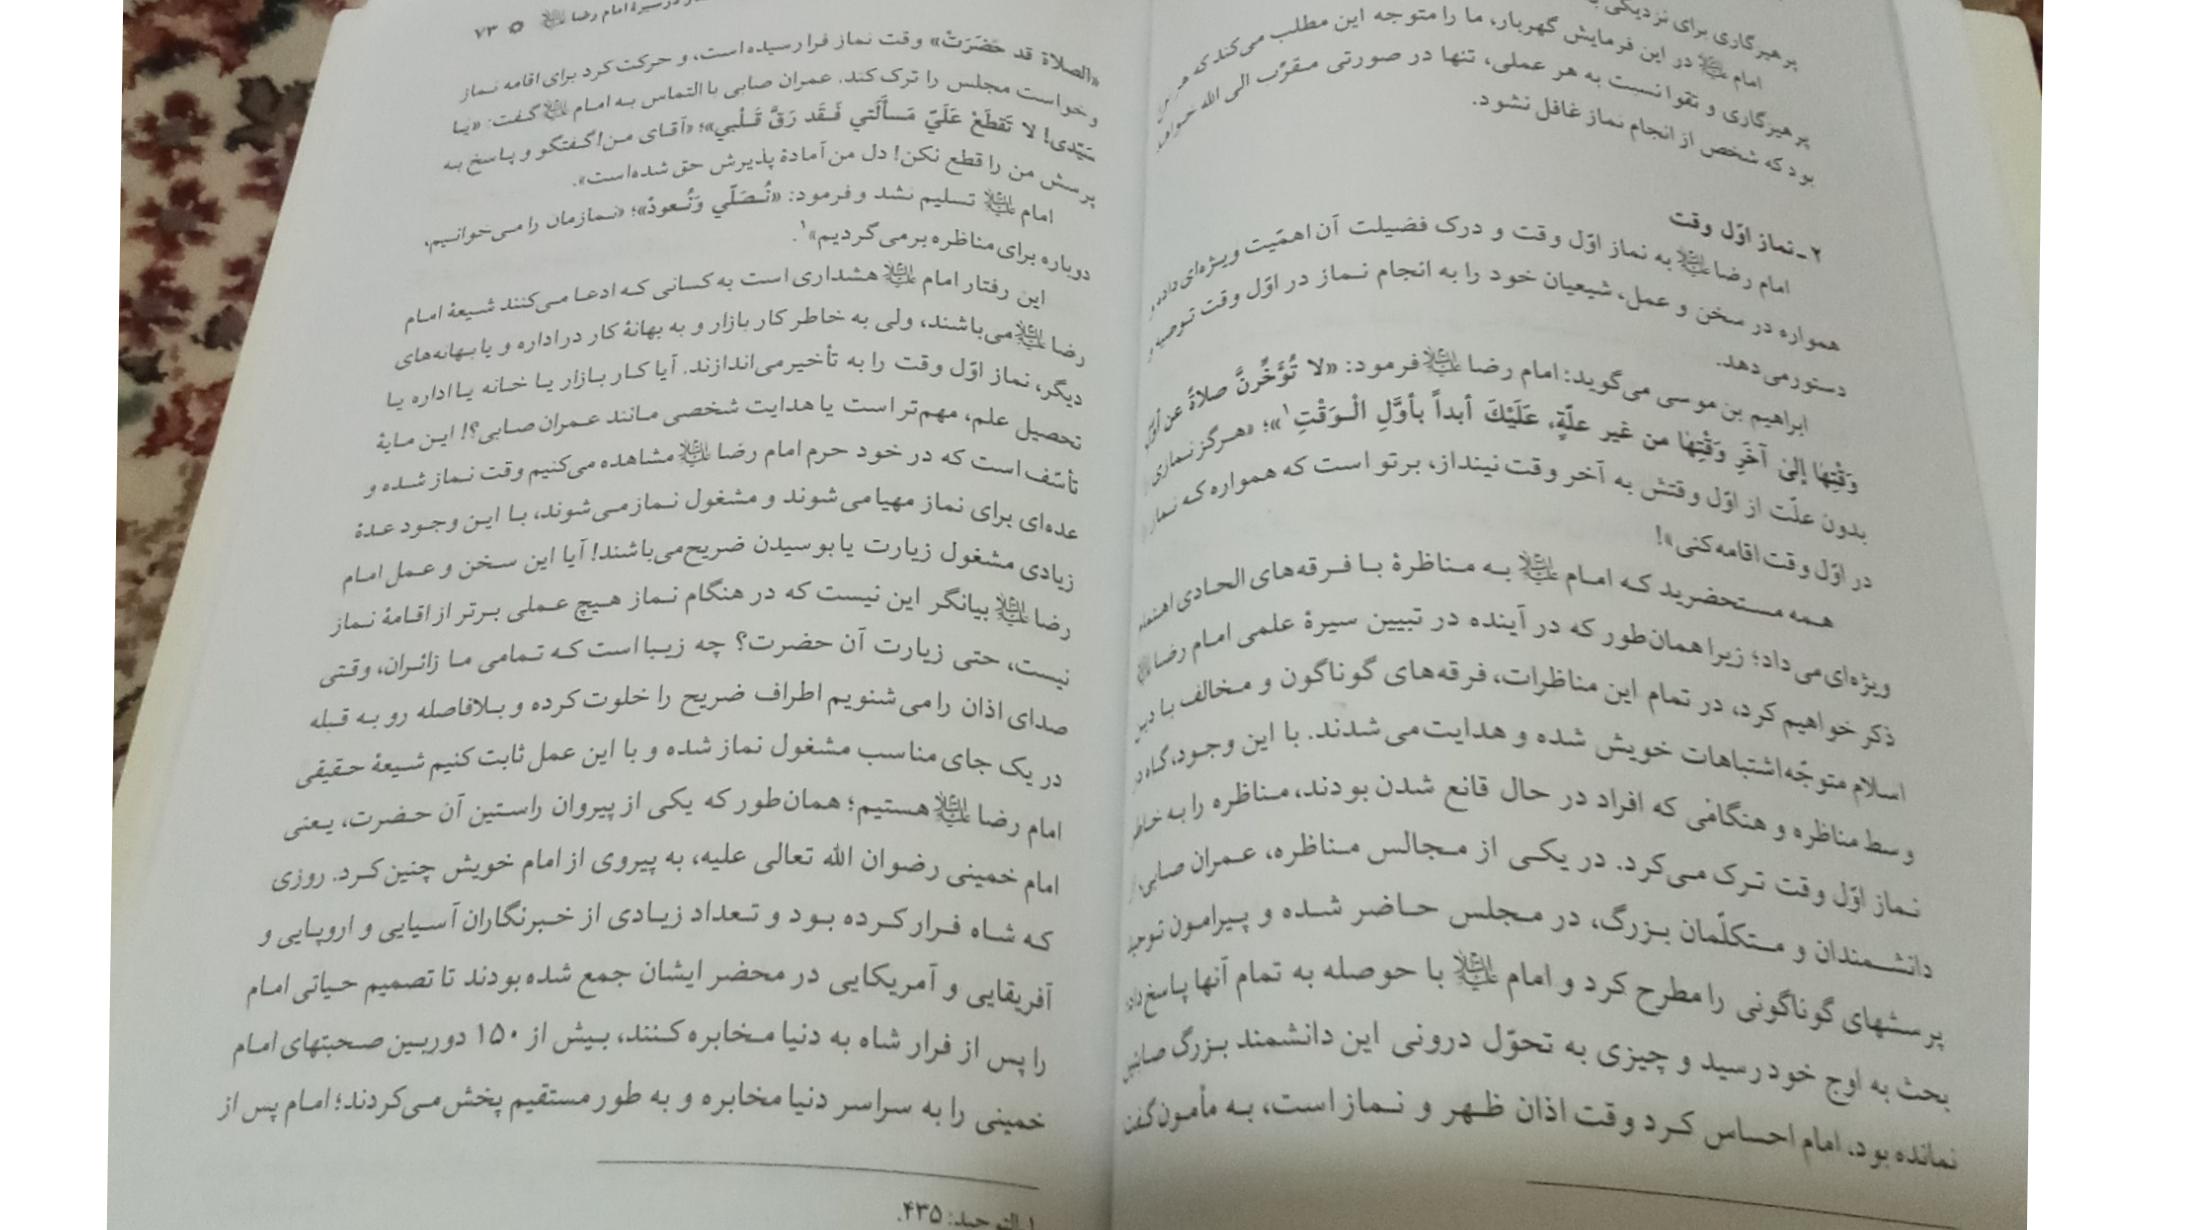 پرهیزگاری برای نزدیکی
امام در این فرمایش گهربار، ما را متوجه این مطلب می‌کند که هر
پرهیزگاری و تقوا نسبت به هر عملی، تنها در صورتی مقرّب الی الله
بود که شخص از انجام نماز غافل نشود.
۲ ـ نماز اوّل وقت
امام رضا علیه السلام به نماز اوّل وقت و درک فضیلت آن اهمّیت ویژه‌ای داده و
همواره در سخن و عمل، شیعیان خود را به انجام نماز در اوّل وقت توصیه و
دستور می‌دهد.
ابراهیم بن موسی می‌گوید: امام رضا علیه السلام فرمود: «لا تُؤَخِّرنَّ صلاةً عن أوّل
وَقْتِها إلىٰ آخَرِ وَقْتِها من غیر علّةٍ، عَلَيْكَ أبداً بأوَّلِ الْـوَقْتِ۱»؛ «هـرگز نـمازی
بدون علّت از اوّل وقتش به آخر وقت نینداز، بر تو است که همواره کـه نـماز
در اوّل وقت اقامه کنی»!
همه مستحضرید که امام علیه السلام به مناظرهٔ با فرقه‌های الحادی
ویژه‌ای می‌داد؛ زیرا همان‌طور که در آینده در تبیین سیرهٔ علمی امام رضا علیه السلام
ذکر خواهیم کرد، در تمام این مناظرات، فرقه‌های گوناگون و مخالف با دین
اسلام متوجّه اشتباهات خویش شده و هدایت می‌شدند. با این وجود، گاه در
وسط مناظره و هنگامی که افراد در حال قانع شدن بودند، مناظره را به خاطر
نماز اوّل وقت ترک می‌کرد. در یکی از مجالس مناظره، عمران صابی،
دانشمندان و متکلّمان بزرگ، در مجلس حاضر شده و پیرامون توحید
پرسشهای گوناگونی را مطرح کرد و امام علیه السلام با حوصله به تمام آنها پاسخ داد،
بحث به اوج خود رسید و چیزی به تحوّل درونی این دانشمند بزرگ صابئین
نمانده بود، امام احساس کرد وقت اذان ظهر و نماز است، به مأمون گفت
در سیرهٔ امام رضا علیه السلام ۷۳
«الصلاة قد حَضَرَتْ» وقت نماز فرا رسیده است، و حرکت کرد برای اقامه نماز
و خواست مجلس را ترک کند. عمران صابی با التماس به امام علیه السلام گفت: «یا
سَيِّدی! لا تَقطَعْ عَلَيّ مَسأَلَتي فَـقَد رَقَّ قَـلْبي»؛ «آقای من! گفتگو و پاسخ به
پرسش من را قطع نکن! دل من آمادهٔ پذیرش حق شده است».
امام علیه السلام تسلیم نشد و فرمود: «نُـصَلّي وَنُـعودُ»؛ «نمازمان را می‌خوانیم،
دوباره برای مناظره برمی‌گردیم»۱.
این رفتار امام علیه السلام هشداری است به کسانی که ادعا می‌کنند شیعهٔ امام
رضا علیه السلام می‌باشند، ولی به خاطر کار بازار و به بهانهٔ کار در اداره و یا بهانه‌های
دیگر، نماز اوّل وقت را به تأخیر می‌اندازند. آیا کار بازار یا خانه یا اداره یا
تحصیل علم، مهم‌تر است یا هدایت شخصی مانند عمران صابی؟! این مایهٔ
تأسّف است که در خود حرم امام رضا علیه السلام مشاهده می‌کنیم وقت نماز شده و
عده‌ای برای نماز مهیا می‌شوند و مشغول نماز می‌شوند، با این وجود عدهٔ
زیادی مشغول زیارت یا بوسیدن ضریح می‌باشند! آیا این سخن و عمل امام
رضا علیه السلام بیانگر این نیست که در هنگام نماز هیچ عملی برتر از اقامهٔ نماز
نیست، حتی زیارت آن حضرت؟ چه زیبا است که تمامی ما زائران، وقتی
صدای اذان را می‌شنویم اطراف ضریح را خلوت کرده و بلافاصله رو به قبله
در یک جای مناسب مشغول نماز شده و با این عمل ثابت کنیم شیعهٔ حقیقی
امام رضا علیه السلام هستیم؛ همان‌طور که یکی از پیروان راستین آن حضرت، یعنی
امام خمینی رضوان الله تعالی علیه، به پیروی از امام خویش چنین کرد. روزی
که شاه فرار کرده بود و تعداد زیادی از خبرنگاران آسیایی و اروپایی و
آفریقایی و آمریکایی در محضر ایشان جمع شده بودند تا تصمیم حیاتی امام
را پس از فرار شاه به دنیا مخابره کنند، بیش از ۱۵۰ دوربین صحبتهای امام
خمینی را به سراسر دنیا مخابره و به طور مستقیم پخش می‌کردند؛ امام پس از
۱. التوحید: ۴۳۵.